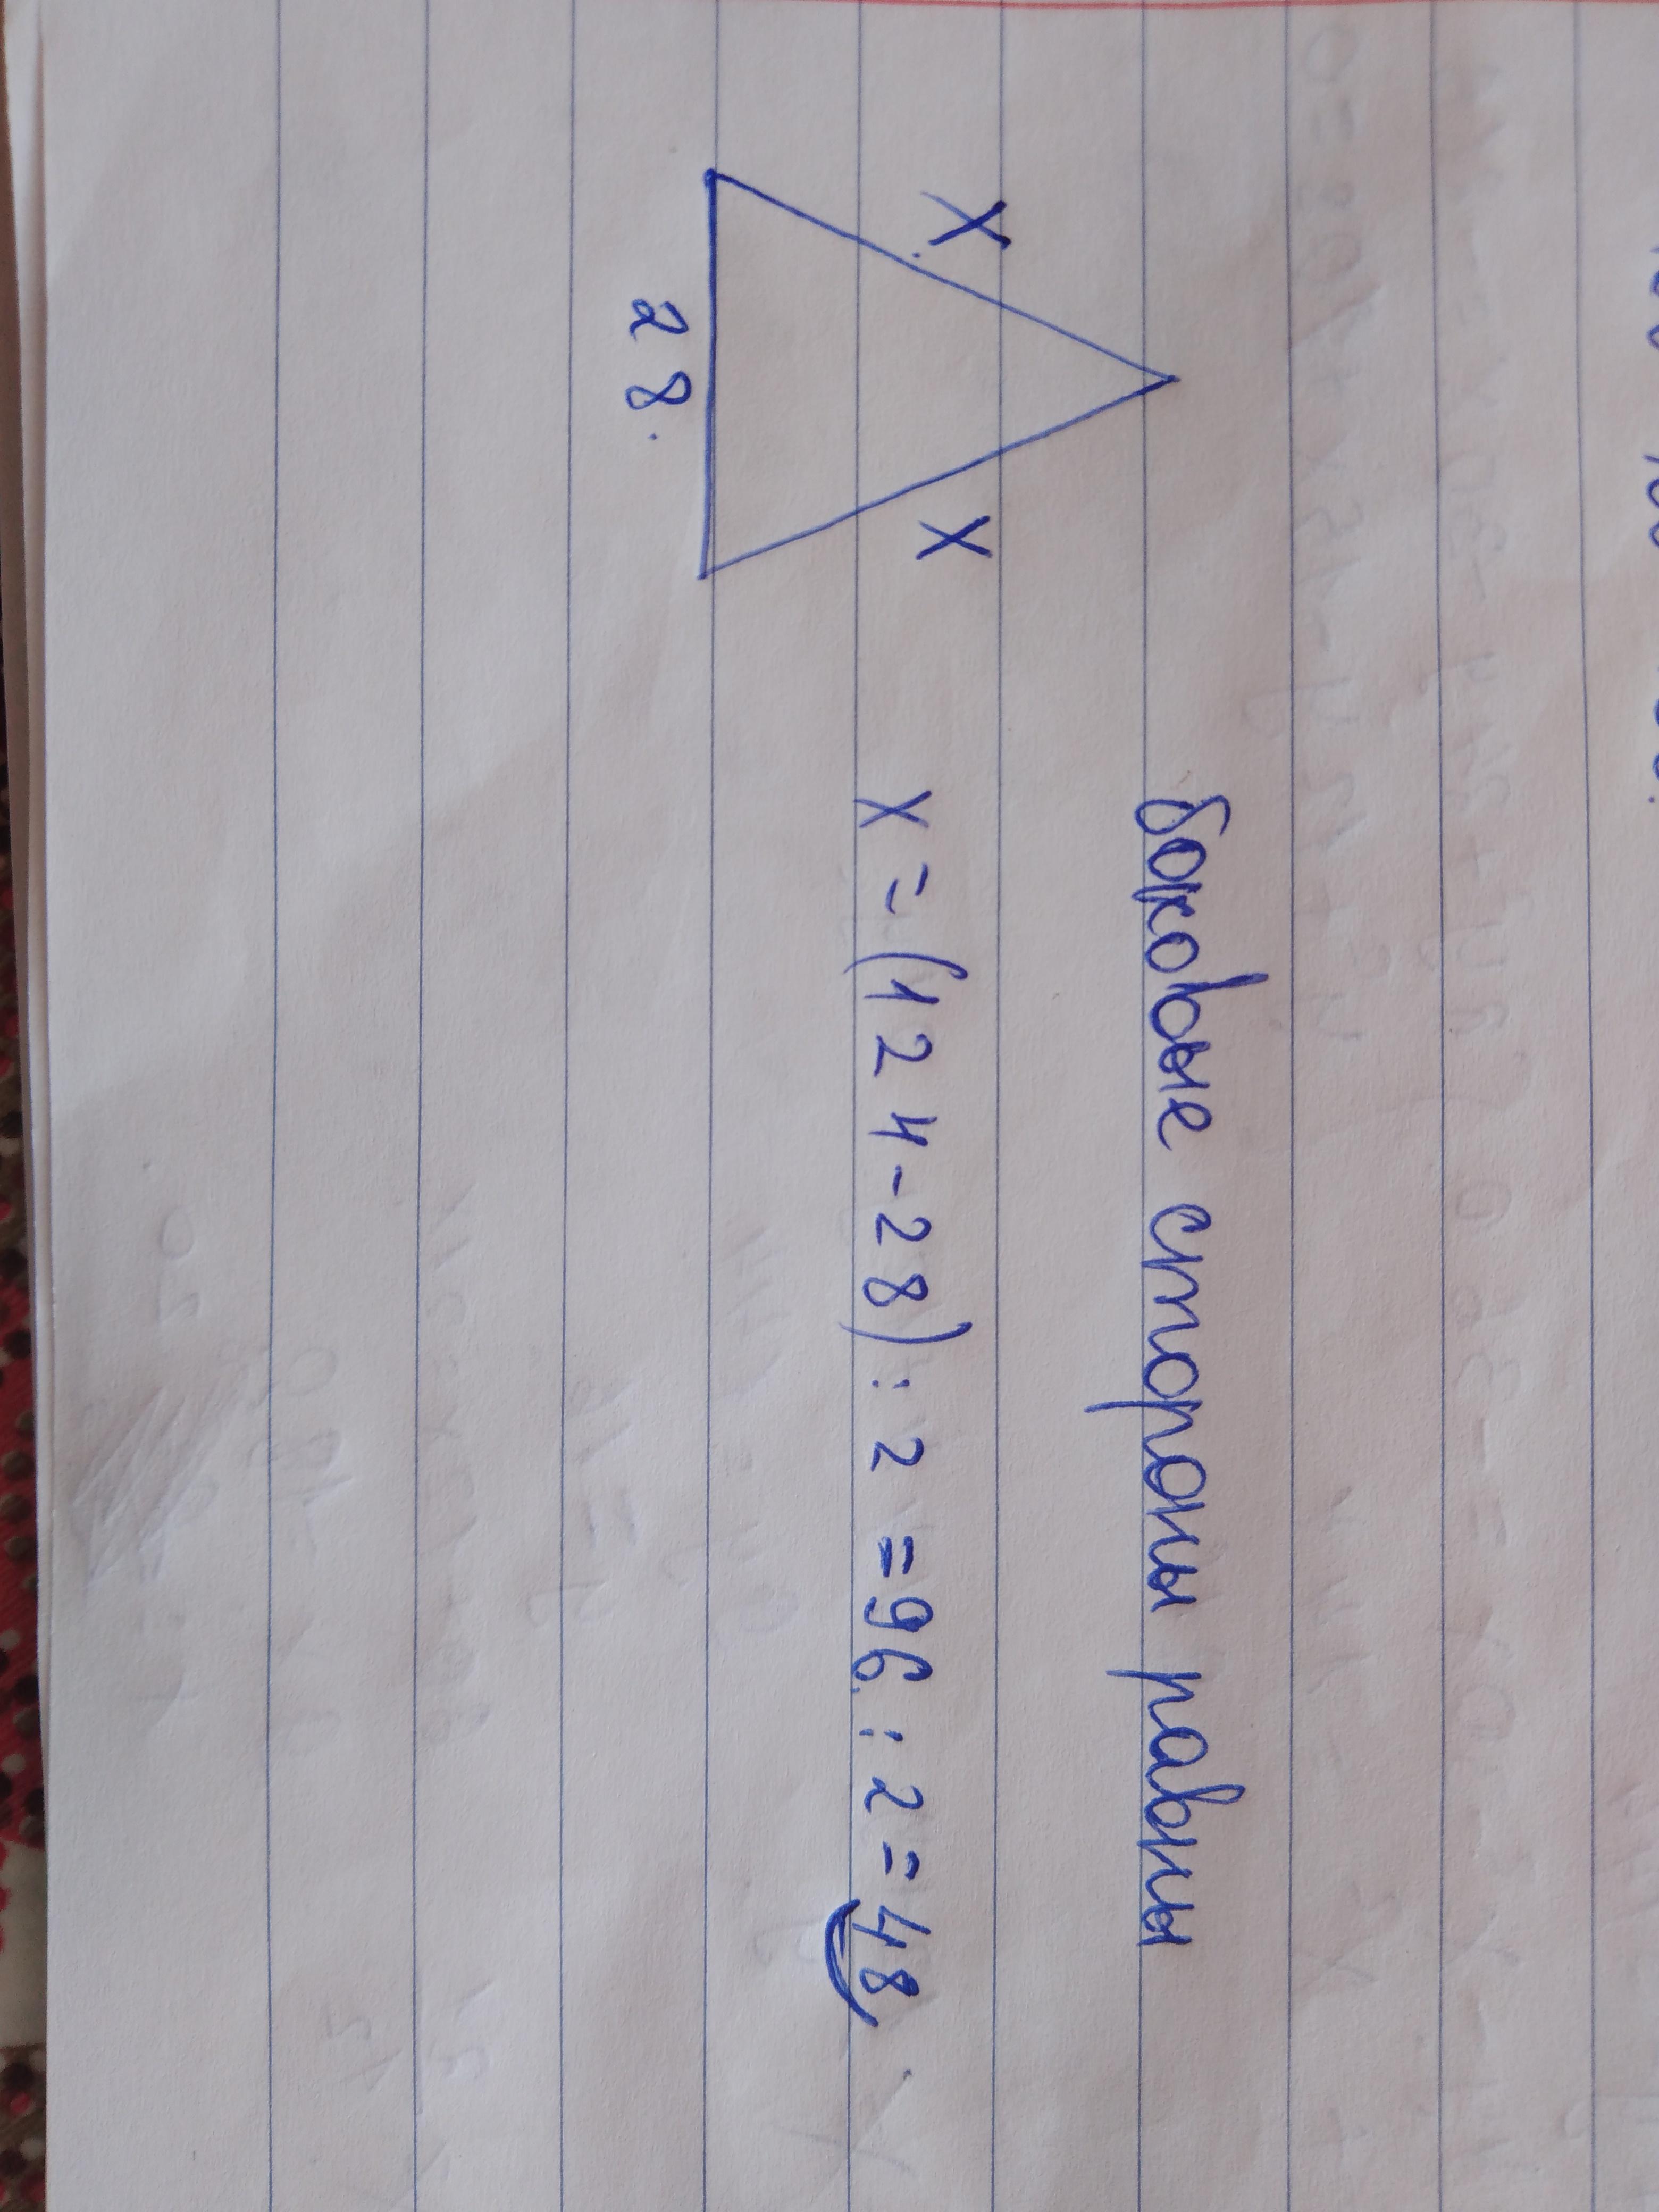 боковые стороны равны
X X
X = (124-28) : 2 = 96 : 2 = 48
28.